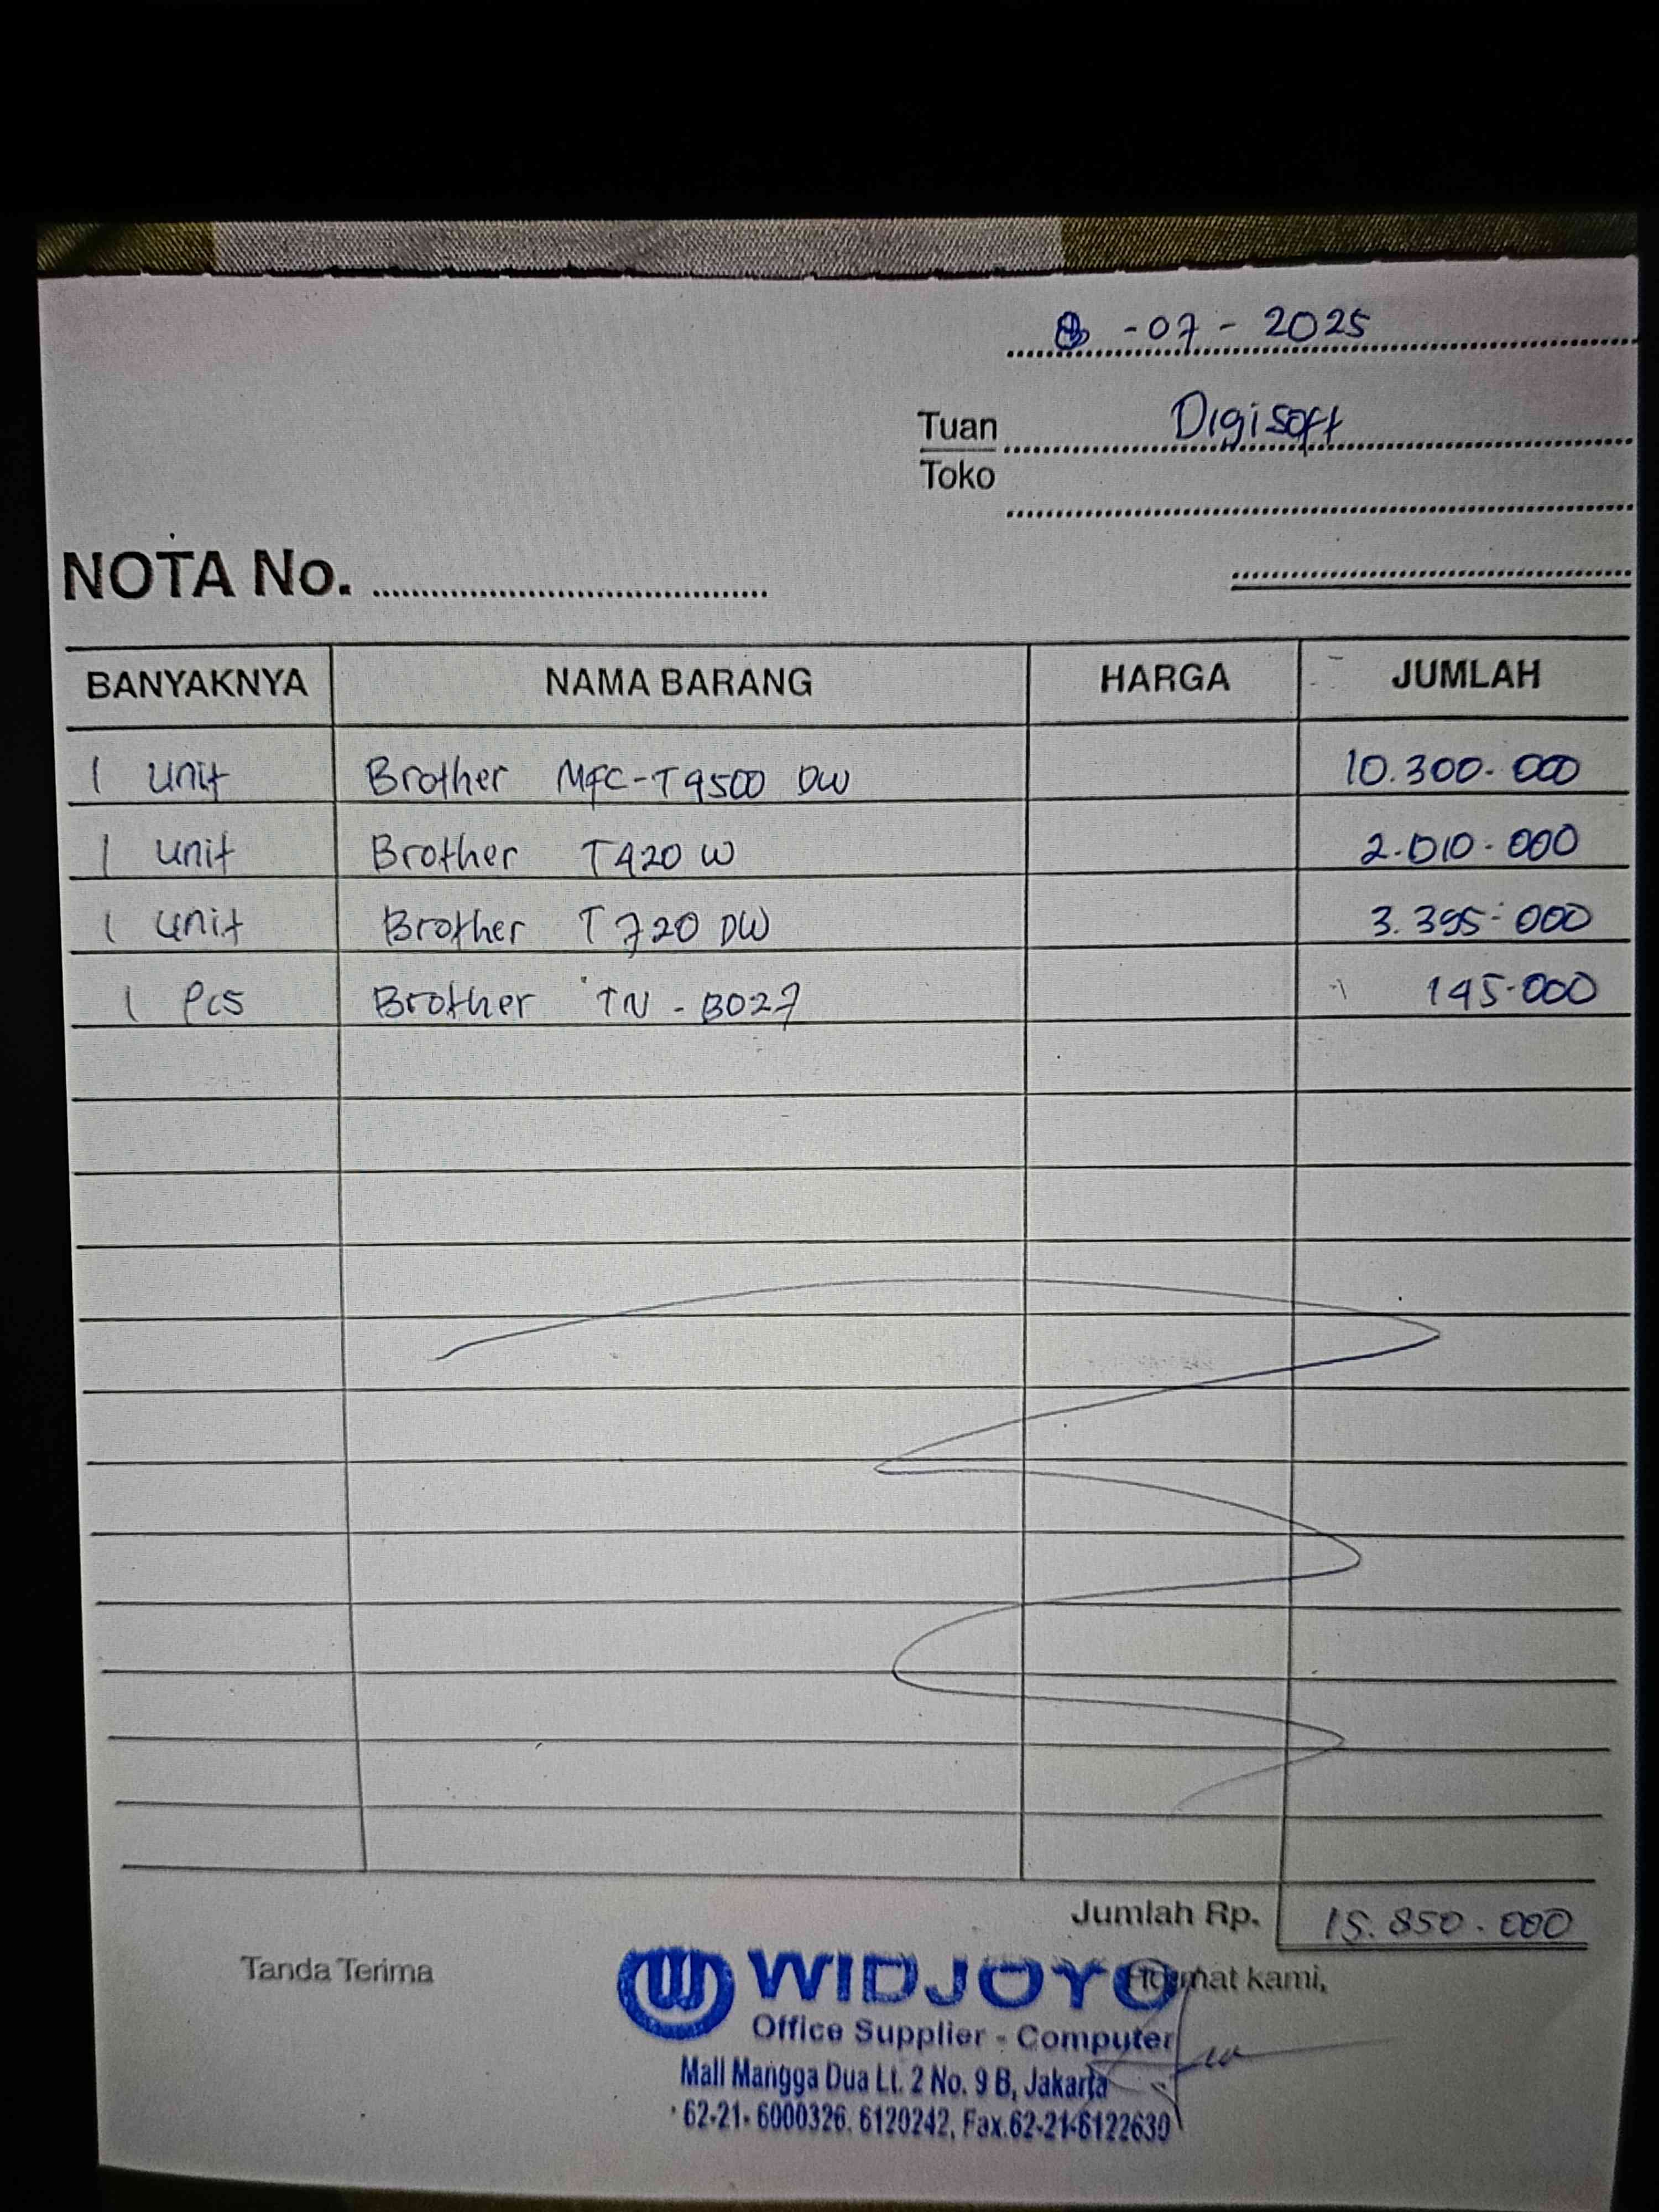 -07-2025
Tuan Digisoft
Toko
NOTA No.
BANYAKNYA NAMA BARANG HARGA JUMLAH
1 unit Brother MFC-T4500 DW 10.300.000
1 unit Brother T420 W 2.010.000
1 unit Brother T720 DW 3.395.000
1 Pcs Brother TN-B027 145.000
Jumlah Rp. 15.850.000
Tanda Terima Hormat kami,
WIDJOYO
Office Supplier - Computer
Mall Mangga Dua Lt. 2 No. 9 B, Jakarta
62-21-6000326, 6120242, Fax.62-21-6122630